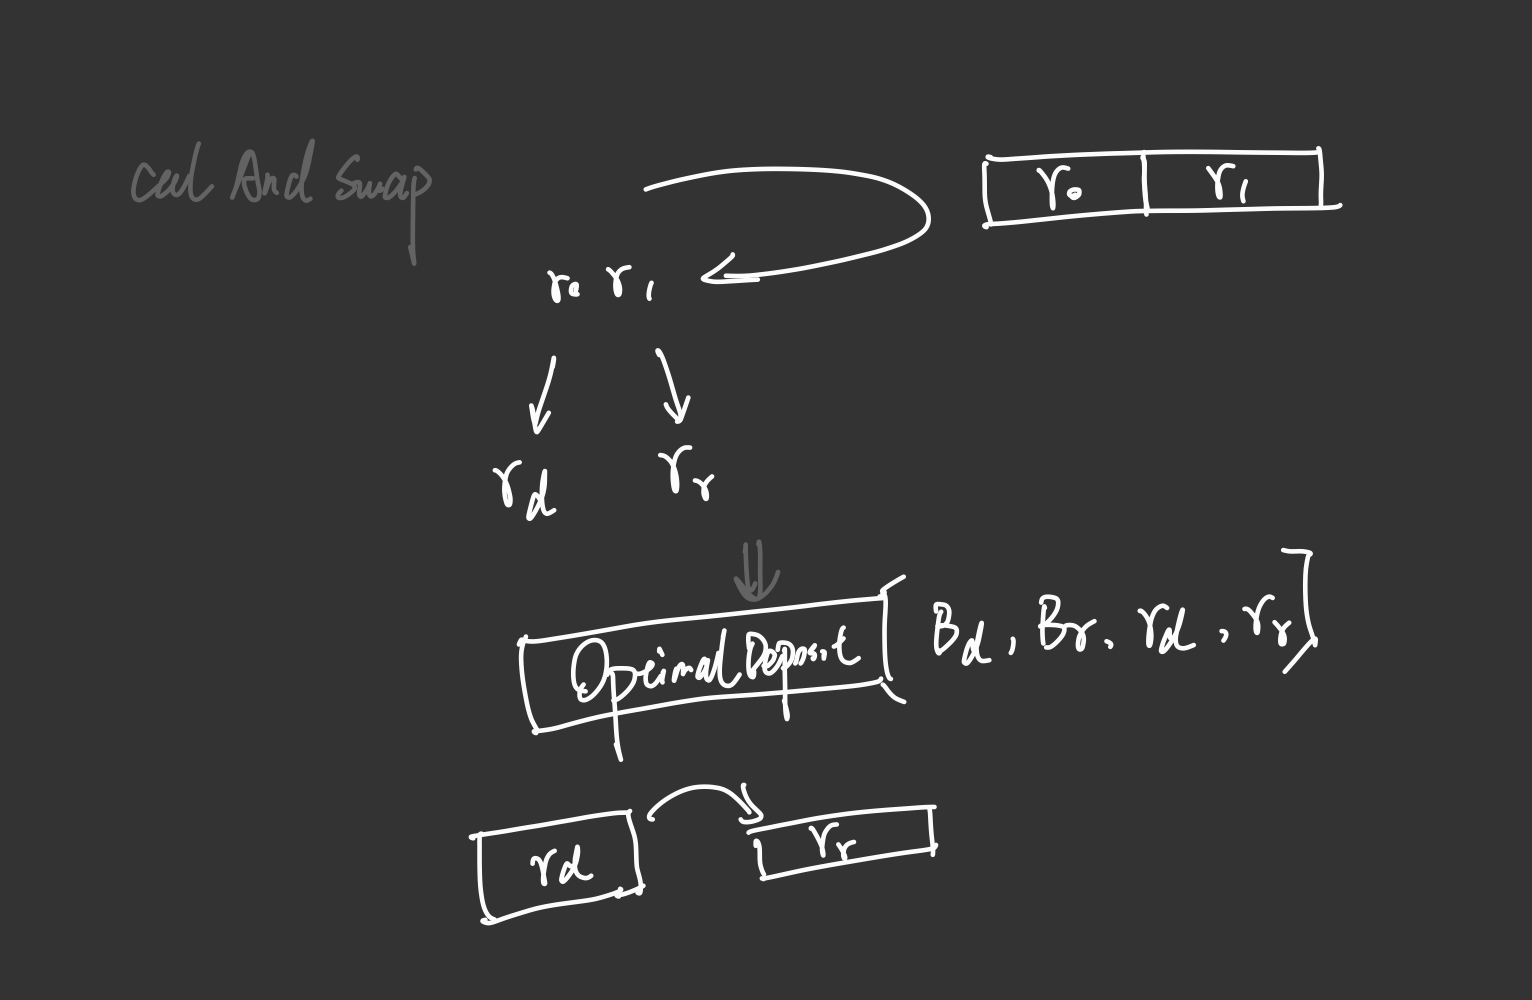 cal And Swap
r0 r1
r0 r1
rd rr
OptimalDeposit ( Bd, Br, rd, rr )
rd rr